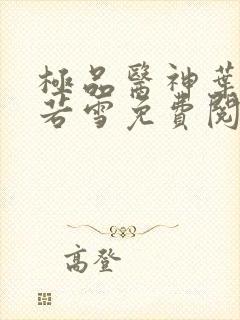 極品醫神葉
若雪免費閱
高登